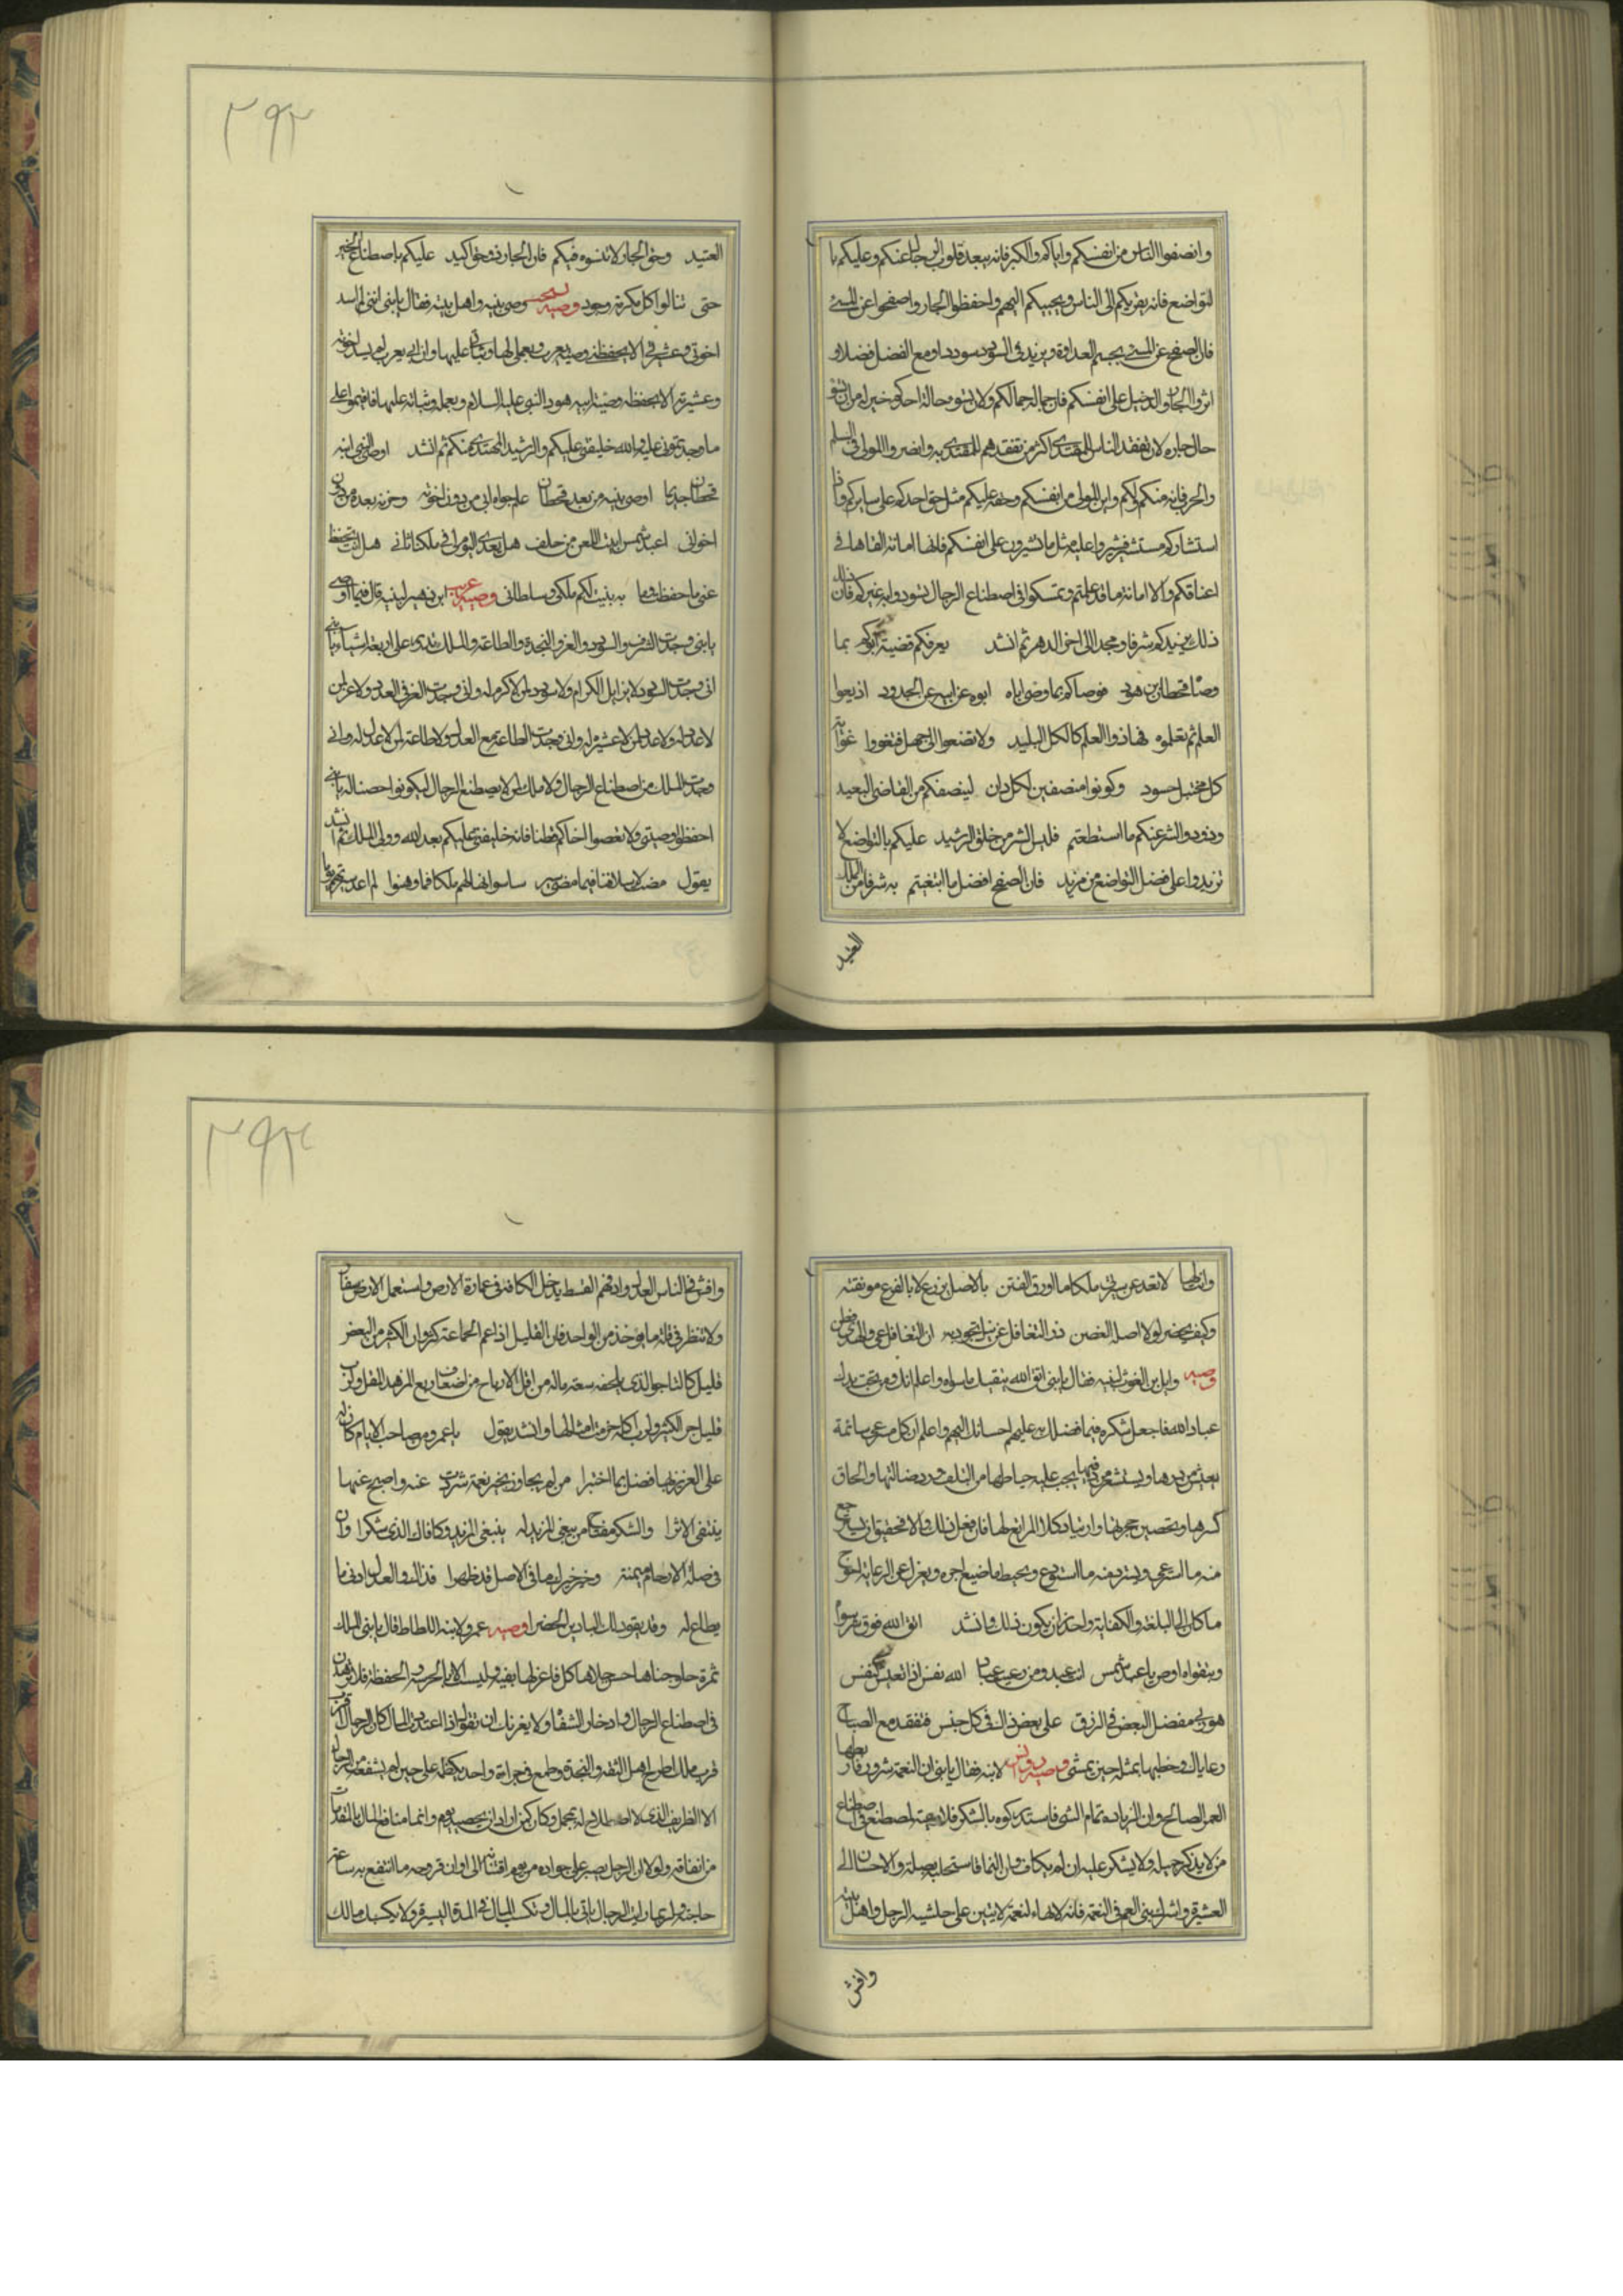 وانصفوا الناس من انفسكم واياكم والكبر فانه يبعد قلوب الرجال عنكم وعليكم با
لتواضع فانه يقربكم الى الناس ويحببكم اليهم واحفظوا الجار واصفحوا عن المسئ
فان الصفح عن المسئ يحسم العداوة ويزيد فى السودد سوددا ومع الفضل فضلا و
اثروا الجار والدخيل على انفسكم فان جماله جمالكم ولان يسوء حالة احدكم خير له من ان يسوء
حال جاره لان تفقد الناس للمقتدى اكثر من تفقدهم للمقتدى به وانصروا المولى فى السلم
والحرب فانه منكم ولكم وابن المولى من انفسكم وحقه عليكم مثل حق احدكم على سايركم واذا
استشاركم مستشير فاشيروا عليه مثل ما تشيرون على انفسكم فانها امانة القاها فى
اعناقكم والامانة ما قد علمتم وتمسكوا فى اصطناع الرجال تسودوا به غيركم فان ذلك
ذلك يزيدكم شرفا ومجدا الى اخر الدهر ثم انشد يعرفكم قضية ابوكم بما
وصا قحطان بن هود فوصاكم بما وصى اباه ابوه عن ابيه عن الجدود اذيعوا
العلم ثم تعلموه فما ذو العلم كالكل البليد ولا تضعوا الى جهل فتغووا غواية
كل مختبل حسود وكونوا منصفين لكل دان لينصفكم من القاضى البعيد
وذودوا الشر عنكم ما استطعتم فليس الشر من خلق الرشيد عليكم بالتواضع لا
تزيدوا على فضل التواضع من مزيد فان الصفح افضل ما ابتغيتم به شرفا من الملك
العتيد
٢٩٢
العتيد وحق الجار لا تنسوه فيكم فان الجار ذو حق اكيد عليكم باصطناع الخير
حتى تنالوا كل مكرمة وجود وصية يشجب وصى بنيه واهل بيته فقال يا بنى اننى لم اسد
اخوتى وعشيرتى الا بحفظى وصية يعرب وبعملى لها وثباتى عليها وان ابى يعرب لم يسد اخوته
وعشيرته الا بحفظه وصية ابيه هود النبى عليه السلام وبعمله وثباته عليها فاقيموا على
ما وجدتمونى عليه والله خليفتى عليكم والرشيد المهتدى منكم ثم انشد اوصى النبى ابنه
قحطان جدى ما اوصى بنيه من بعد قحطان علم حواه ابى من دون اخوته وحزته بعده من دون
اخوانى اعبد شمس ابيت اللعن من خلف هل بعدى اليوم لى فى ملكنا ثانى هل انت تحفظ
عنى ما حفظت وما به بنيت لكم ملكى وسلطانى وصية عريب ابن زهير لبنيه قال فيما اوصى
يا بنى وجدت الشرف والسودد والعز والنجدة والطاعة والملك تبدى على اربعة اشياء يا بنى
انى وجدت السودد لا يزايل الكرام ولا سودد لمن لا كرم له وانى وجدت العز فى العدد ولا عز لمن
لا عدد له ولا عدد لمن لا عشيرة له وانى وجدت الطاعة مع العدل ولا طاعة لمن لا عدل له وانى
وجدت الملك من اصطناع الرجال ولا ملك لمن لا يصطنع الرجال ليكونوا حصنا له يا بنى
احفظوا وصيتى ولا تعصوا اخاكم قطنا فانه خليفتى عليكم بعد الله وولى الملك ثم انشد
يقول مضت لاسلافنا فيما مضى سير ساسوا بها لهم ملكا فما وهنوا لم اعد سيرتهم يوما
وافعالها لا تعد عن سيرتى ملكا ما اورق الفنن بالاصل يزرع لا بالفرع مونقته
وكيف يخضر لولا اصله الغصن ذو التغافل عن نيل تجود به ان التغافل عى والهدى فطن
وصية وايل بن الغوث لبنيه فقال يا بنى اتق الله يتقيك ما سواه واعلم انك ومن تحت يدك
عباد الله فاجعل شكره فيما فضلك به عليهم احسانك اليهم واعلم ان كل مسترعى سائمة
يعيش من درها ويستشعر من دفئها يجب عليه حياطها من التلف ورد ضالتها والحاق
كسرها وتحصين حجرتها وارتياد كلا المراتع لها فان فعل ذلك والا فحقيق ان يسترجع
منه ما استرعى ويسترد منه ما استودع ويحبط ما ضيع اجره ويعزل عن الرعاية احوج
ما كان الى البلغة والكفاية واحذر ان يكون ذلك وانشد اتق الله فوق عرسوا
وبتقواه اوص يا عبد شمس انت عبد ومن رعيت عباد الله نفس اذا تعد كنفس
هو ربى مفضل البعض فى الرزق على بعض ذلك فى كل جنس فتفقد مع الصباح
رعاياك وخطبها بمثله حين يمشى وصية لابنه فقال يا بنى ان النعمة شرود فاربطها
العمل الصالح وان الزيادة تمام الشئ فاستدركوه بالشكر فلا تصطنع فى اصطناع
من لا يذكر جميله ولا يشكر عليه ان لم يكاف وان النما فاستجلبه بصلة والاحسان الى
العشيرة واشراك بنى العم فى النعمة فانه لا بهاء لنعمة لا يتبين على حاشية الرجل واهل بيته
وافش
٢٩٣
وافش فى الناس العدل وادفهم القسط يدخل الكافة فى عمارة الارض واستعمل الارض بصفات
ولا تنظر فى قلة ما يؤخذ من الواحد فان القليل اذا عم الجماعة كثر وان الكثير من البعض
قليل كالتاجر الذى يلحقه سعة ماله من اقل الارباح من اضعاف ربع المزهد المقل ورب
قليل جر الكثير ورب اكلة حرمت امثالها وانشد يقول يا عمرو من صاحب الايام كان له
على العزيز لها فضل بما اختبرا من لم يجاوز بخير نعمة شردت عنه واصبح عنها
يقتفى الاثرا والشكر مفتاح من يبغى المزيد له ينبغى المزيد وكافاك الذى شكرا وان
فى صلة الارحام ميمنة وخير خير لها فى الاصل قد ظهرا فذلك والعدل ادنى ما
يطاع له وقد يقود اليك البادين الحضرا وصية عمرو لابنه الملطاط قال يا بنى الملك
ثمرة حلو جناها حسن حلاها كل فاغر لها بفيه وليست الا بالحراسة والحفظة فلا تزهدن
فى اصطناع الرجال وادخار الشفاء ولا يغرنك ان تقول اذا اعتددت المال كان الرجال
فرب مالك اطرح اهل الثقة والنجدة وطمع فى جراءة واحد يكفله على حين لم يشفعه من الرجال
من انفاقه ولولا ان الرجل يصبر على جواده من يوم اقتناه الى اوان قروحه ما انتفع به ساعة
حاجته ولربما رايت الرجال ياتى بالمال وتكسب المال فى المدة اليسيرة ولا يكسب مالك